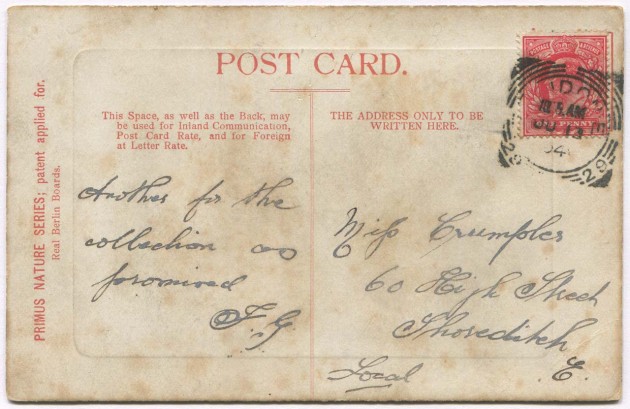 POST CARD.
PRIMUS NATURE SERIES; patent applied for.
Real Berlin Boards.
This Space, as well as the Back, may
be used for Inland Communication,
Post Card Rate, and for Foreign
at Letter Rate.
THE ADDRESS ONLY TO BE
WRITTEN HERE.
Another for the
collection as
promised
F.G
Miss Crumpler
60 High Street
Shoreditch
E.
Local
POSTAGE
PENNY
04
29